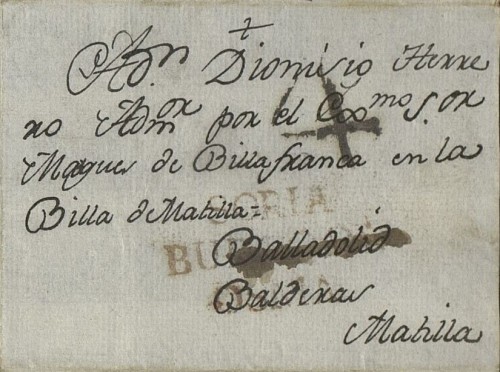 +
A Dn Dionisio Herre
ro Admor por el Exmo Sor
Marques de Billafranca en la
Billa de Matilla=
SORIA
Balladolid
Balderas
Matilla